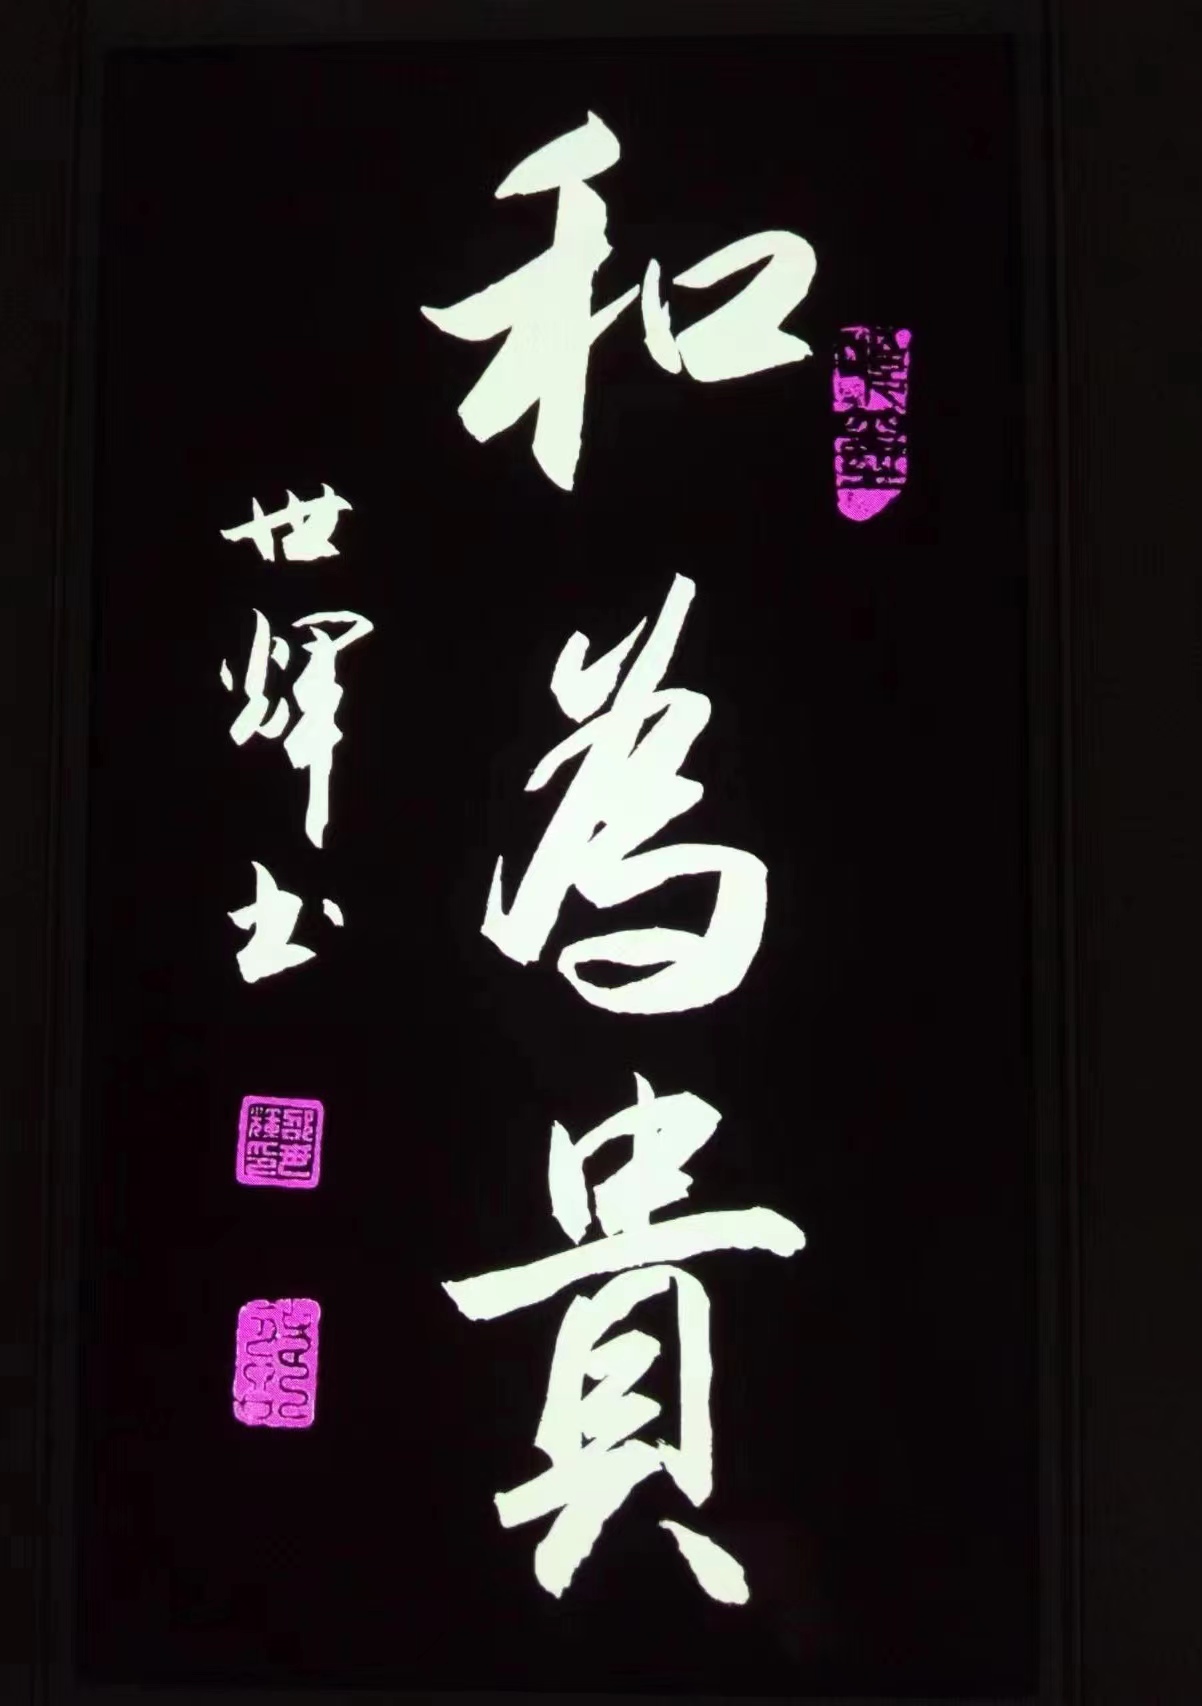 和為貴
世輝书